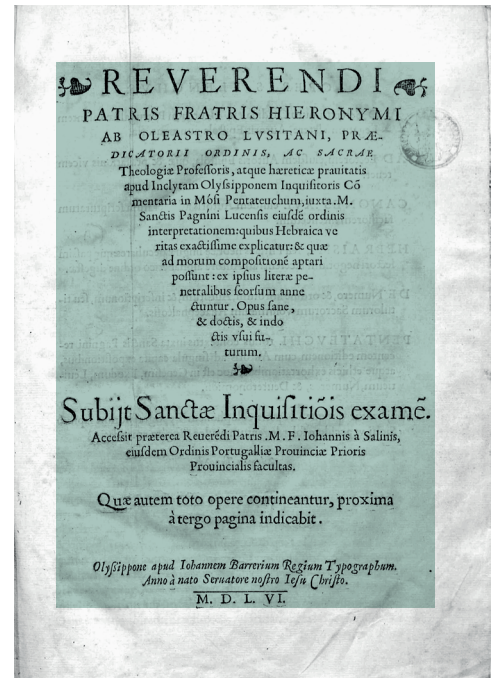 REVERENDI
PATRIS FRATRIS HIERONYMI
AB OLEASTRO LVSITANI, PRÆ-
DICATORII ORDINIS, AC SACRAE
Theologiæ Professoris, atque hæreticæ prauitatis
apud Inclytam Olyssipponem Inquisitoris Cō
mentaria in Mōsi Pentateuchum, iuxta .M.
Sanctis Pagnini Lucensis eiusdē ordinis
interpretationem: quibus Hebraica ve
ritas exactissime explicatur: & quæ
ad morum compositionē aptari
possunt: ex ipsius literæ pe-
netralibus seorsum anne
ctuntur. Opus sane,
& doctis, & indo
ctis vsui fu-
turum.
Subijt Sanctæ Inquisitiōis examē.
Accessit præterea Reuerēdi Patris .M. F. Iohannis à Salinis,
eiusdem Ordinis Portugalliæ Prouinciæ Prioris
Prouincialis facultas.
Quæ autem toto opere contineantur, proxima
à tergo pagina indicabit.
Olyssippone apud Iohannem Barrerium Regium Typographum.
Anno à nato Seruatore nostro Iesu Christo.
M. D. L. VI.